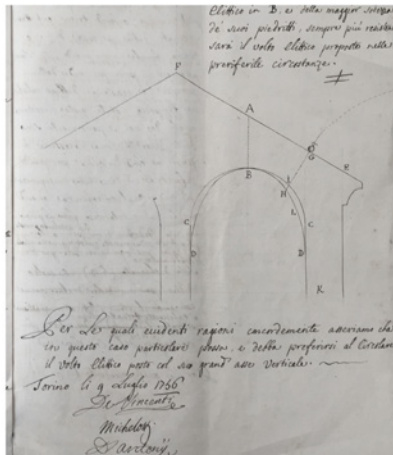 Elittico in B, e della maggior
de' suoi piedritti, sempre più
sarà il volto Elittico proposto nelle
circostanze.
P
A
G
B
I
H
L
C
C
D
D
K
Per le quali evidenti ragioni concordemente asseriamo che
in questo caso particolare possa, e debba preferirsi al Circolare
il volto Elittico posto col suo grand' asse verticale.
Torino li 9 Luglio 1766
De Vincenti